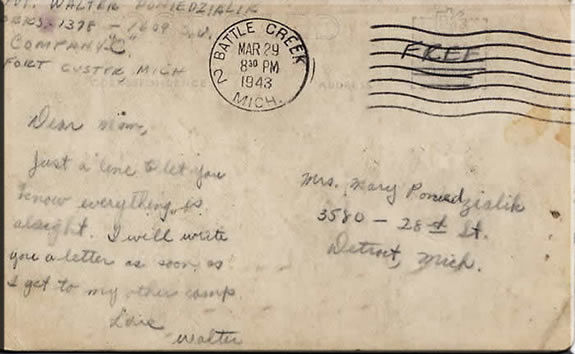 WALTER PONIEDZIALIK
BRKS-1378 - 1609 S.U.
COMPANY "C"
FORT CUSTER MICH
BATTLE CREEK
2
MAR 29
8 30 PM
1943
MICH.
FREE
CORRESPONDENCE
ADDRESS
Dear Mom,
Just a line to let you
know everything is
alright. I will write
you a letter as soon as
I get to my other camp.
Love
Walter
Mrs. Mary Poniedzialik
3580 - 28th St.
Detroit, Mich.